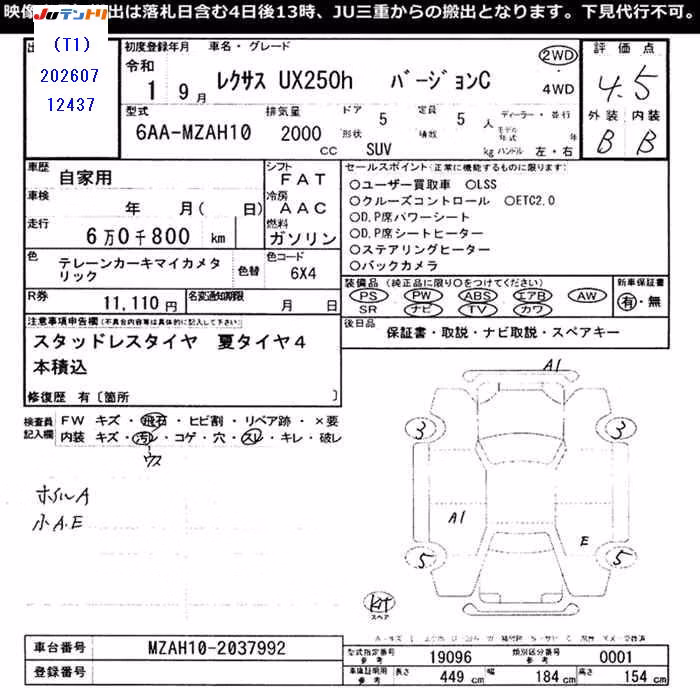 映像 出は落札日含む4日後13時、JU三重からの搬出となります。下見代行不可。
JUテントリ
(T1)
202607
12437
出
初度登録年月 車名・グレード
令和
1 9月 レクサス UX250h バージョンC
2WD
4WD
評価点
4.5
外装 内装
B B
型式 排気量 ドア 定員 ディーラー・並行
6AA-MZAH10 2000 CC
5 5人
形状 SUV 積載 kg
モデル年式 年
ハンドル 左・右
車歴 自家用
シフト FAT
車検 年 月( 日)
冷房 AAC
走行 6万0千800 km
燃料 ガソリン
色 テレーンカーキマイカメタリック
色替
色コード 6X4
R券 11,110円
名変通知期限 月 日
セールスポイント(正常に機能するものに限ります)
○ユーザー買取車 ○LSS
○クルーズコントロール ○ETC2.0
○D,P席パワーシート
○D,P席シートヒーター
○ステアリングヒーター
○バックカメラ
装備品 (純正品に限り○をつけてください) 新車保証書
PS PW ABS エアB AW 有・無
SR ナビ TV カワ
後日品 保証書・取説・ナビ取説・スペアキー
注意事項申告欄(不具合内容等は具体的に記入して下さい)
スタッドレスタイヤ 夏タイヤ4
本積込
修復歴 有〔箇所 〕
検査員 FW キズ・飛石・ヒビ割・リペア跡・×要
記入欄 内装 キズ・汚レ・コゲ・穴・スレ・キレ・破レ
ウス
ホイルA
小A.E
A1
3 3
A1
E
5 5
キット
スペア
車台番号 MZAH10-2037992
登録番号
型式指定番号 参考 19096 類別区分番号 参考 0001
車庫証明用 参考 長さ 449 cm 幅 184 cm 高さ 154 cm